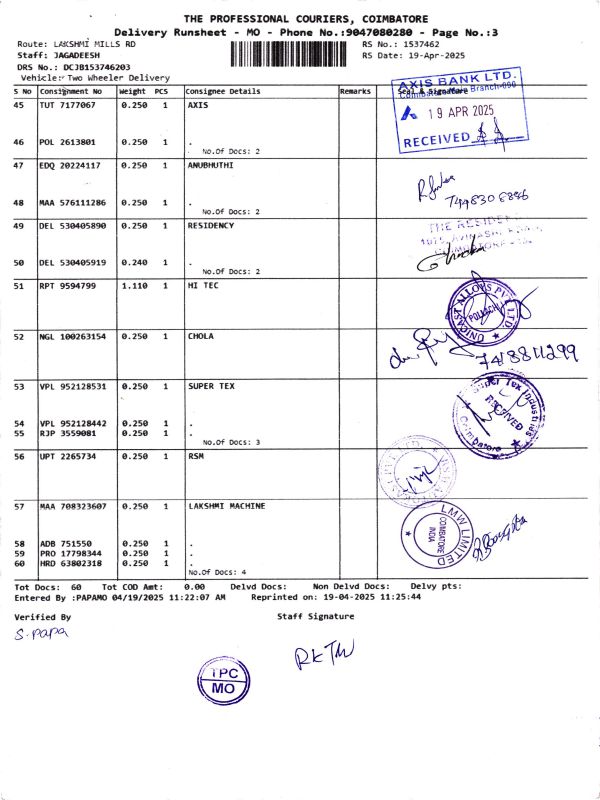 THE PROFESSIONAL COURIERS, COIMBATORE
Delivery Runsheet - MO - Phone No.:9047080280 - Page No.:3
Route: LAKSHMI MILLS RD RS No.: 1537462
Staff: JAGADEESH RS Date: 19-Apr-2025
DRS No.: DCJB153746203
Vehicle: Two Wheeler Delivery
S No Consignment No Weight PCS Consignee Details Remarks Seal & Signature
45 TUT 7177067 0.250 1 AXIS
AXIS BANK LTD.
Branch-090
19 APR 2025
RECEIVED
46 POL 2613801 0.250 1 .
No.Of Docs: 2
47 EDQ 20224117 0.250 1 ANUBHUTHI
48 MAA 576111286 0.250 1 .
No.Of Docs: 2
49 DEL 530405890 0.250 1 RESIDENCY
THE RESIDENCY
50 DEL 530405919 0.240 1 .
No.Of Docs: 2
51 RPT 9594799 1.110 1 HI TEC
UNICAST ALLOYS PVT. LTD.
52 NGL 100263154 0.250 1 CHOLA
7418811299
53 VPL 952128531 0.250 1 SUPER TEX
Super Tex Industries
RECEIVED
Coimbatore
54 VPL 952128442 0.250 1 .
55 RJP 3559081 0.250 1 .
No.Of Docs: 3
56 UPT 2265734 0.250 1 RSM
57 MAA 708323607 0.250 1 LAKSHMI MACHINE
LMW LIMITED
COIMBATORE
INDIA
58 ADB 751550 0.250 1 .
59 PRO 17798344 0.250 1 .
60 HRD 63802318 0.250 1 .
No.Of Docs: 4
Tot Docs: 60 Tot COD Amt: 0.00 Delvd Docs: Non Delvd Docs: Delvy pts:
Entered By :PAPAMO 04/19/2025 11:22:07 AM Reprinted on: 19-04-2025 11:25:44
Verified By Staff Signature
S. papa
TPC
MO